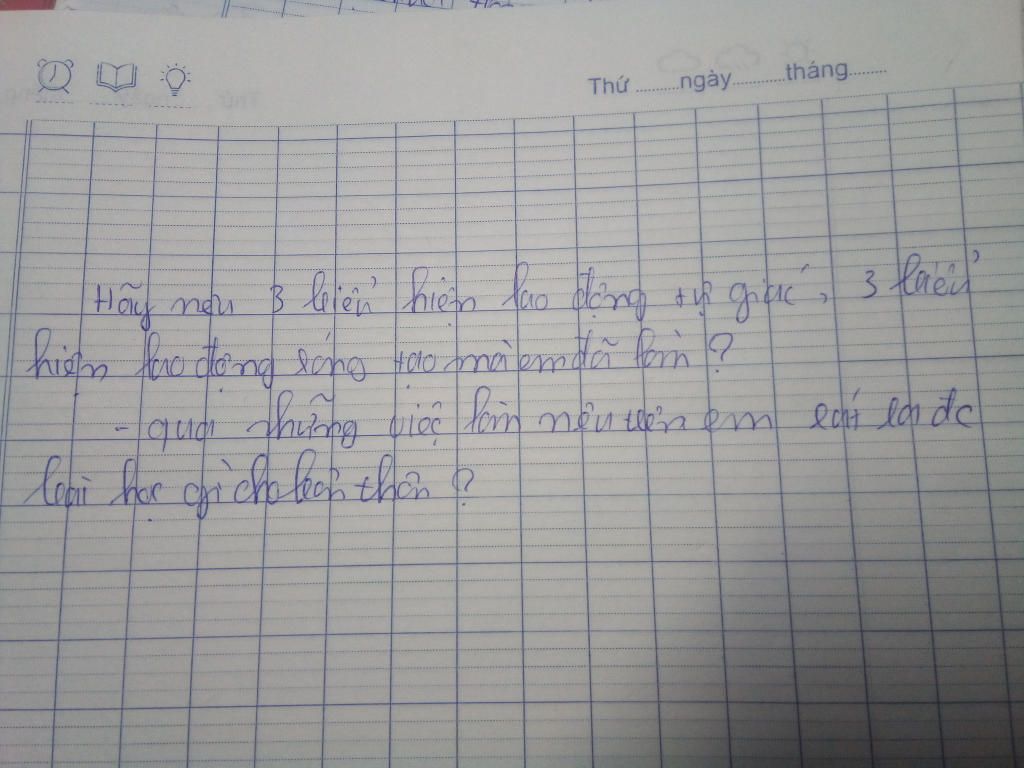 Thứ ..........ngày............tháng.........
Hãy nêu 3 biểu hiện lao động tự giác, 3 biểu
hiện lao động sáng tạo mà em đã làm?
- qua những việc làm nêu trên em rút ra đc
bài học gì cho bản thân?